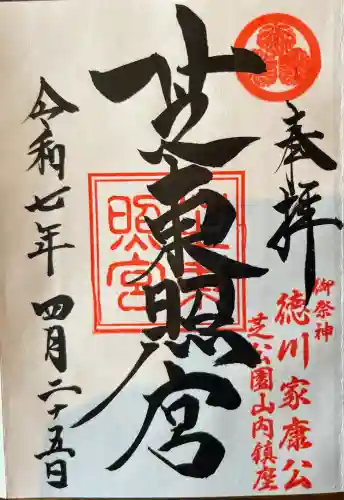 奉拝
御祭神
徳川家康公
芝公園山内鎮座
芝東照宮
芝東照宮
令和七年
四月二十五日